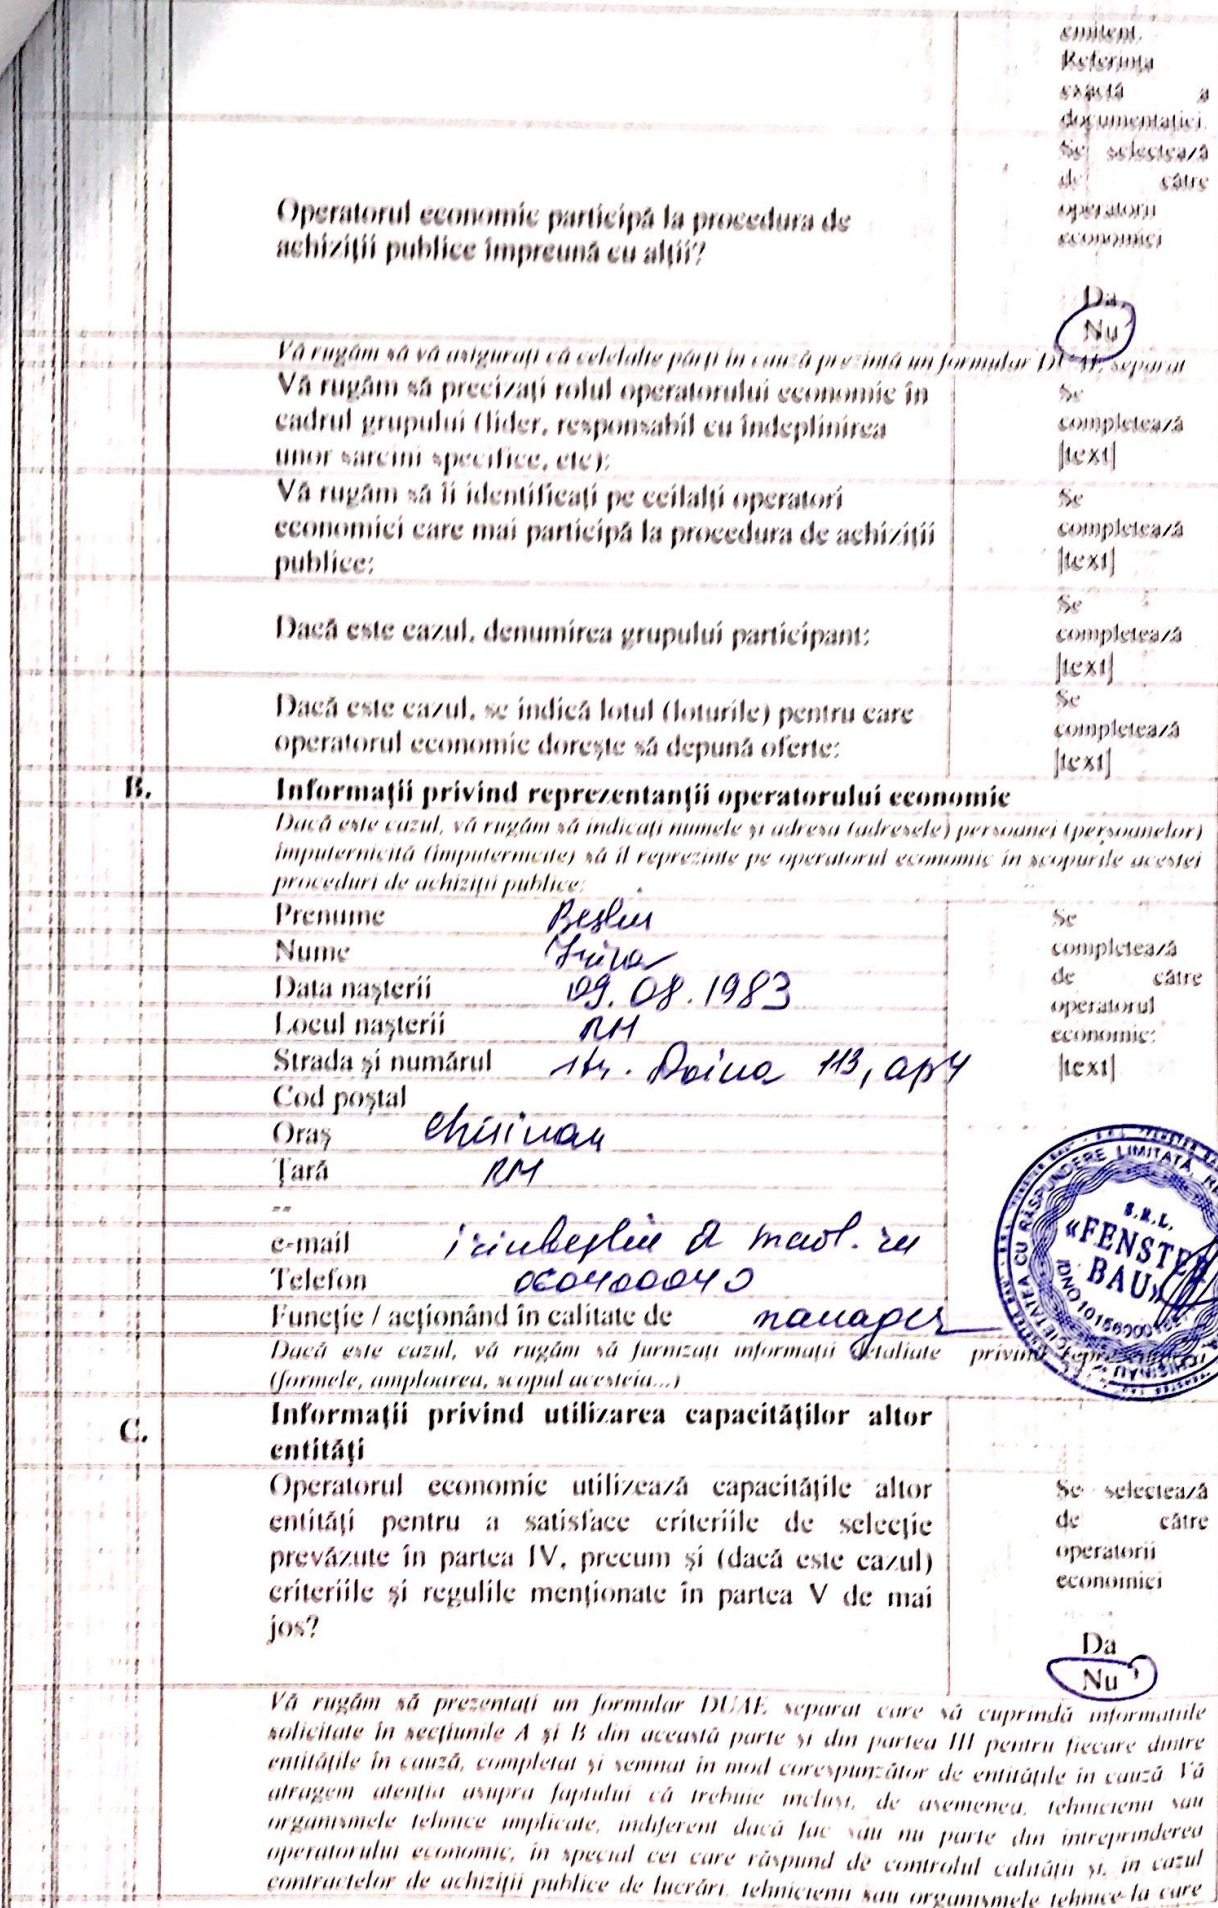 emitent.
Referința
exactă a
documentației.
Se selectează
de către
operatorii
economici
Operatorul economic participă la procedura de
achiziții publice împreună cu alții?
Da
Nu
Vă rugăm să vă asigurați că celelalte părți în cauză prezintă un formular DUAE separat
Vă rugăm să precizați rolul operatorului economic în
cadrul grupului (lider, responsabil cu îndeplinirea
unor sarcini specifice, etc):
Se
completează
[text]
Vă rugăm să îi identificați pe ceilalți operatori
economici care mai participă la procedura de achiziții
publice:
Se
completează
[text]
Dacă este cazul, denumirea grupului participant:
Se
completează
[text]
Dacă este cazul, se indică lotul (loturile) pentru care
operatorul economic dorește să depună oferte:
Se
completează
[text]
B. Informații privind reprezentanții operatorului economic
Dacă este cazul, vă rugăm să indicați numele și adresa (adresele) persoanei (persoanelor)
împuternicită (împuternicite) să îl reprezinte pe operatorul economic în scopurile acestei
proceduri de achiziții publice:
Prenume Beșliu
Nume Irina
Data nașterii 09.08.1983
Locul nașterii RM
Strada și numărul str. Doina 113, ap4
Cod poștal
Oraș Chisinau
Țară RM
--
e-mail irinbesliu @ mail.ru
Telefon 060400040
Funcție / acționând în calitate de manager
Se
completează
de către
operatorul
economic:
[text]
S.R.L.
«FENSTER
BAU»
CHIȘINĂU
Dacă este cazul, vă rugăm să furnizați informații detaliate privind
(formele, amploarea, scopul acesteia...)
C. Informații privind utilizarea capacităților altor
entități
Operatorul economic utilizează capacitățile altor
entități pentru a satisface criteriile de selecție
prevăzute în partea IV, precum și (dacă este cazul)
criteriile și regulile menționate în partea V de mai
jos?
Se selectează
de către
operatorii
economici
Da
Nu
Vă rugăm să prezentați un formular DUAE separat care să cuprindă informațiile
solicitate în secțiunile A și B din această parte și din partea III pentru fiecare dintre
entitățile în cauză, completat și semnat în mod corespunzător de entitățile în cauză. Vă
atragem atenția asupra faptului că trebuie incluși, de asemenea, tehnicienii sau
organismele tehnice implicate, indiferent dacă fac sau nu parte din întreprinderea
operatorului economic, în special cei care răspund de controlul calității și, în cazul
contractelor de achiziții publice de lucrări, tehnicienii sau organismele tehnice la care